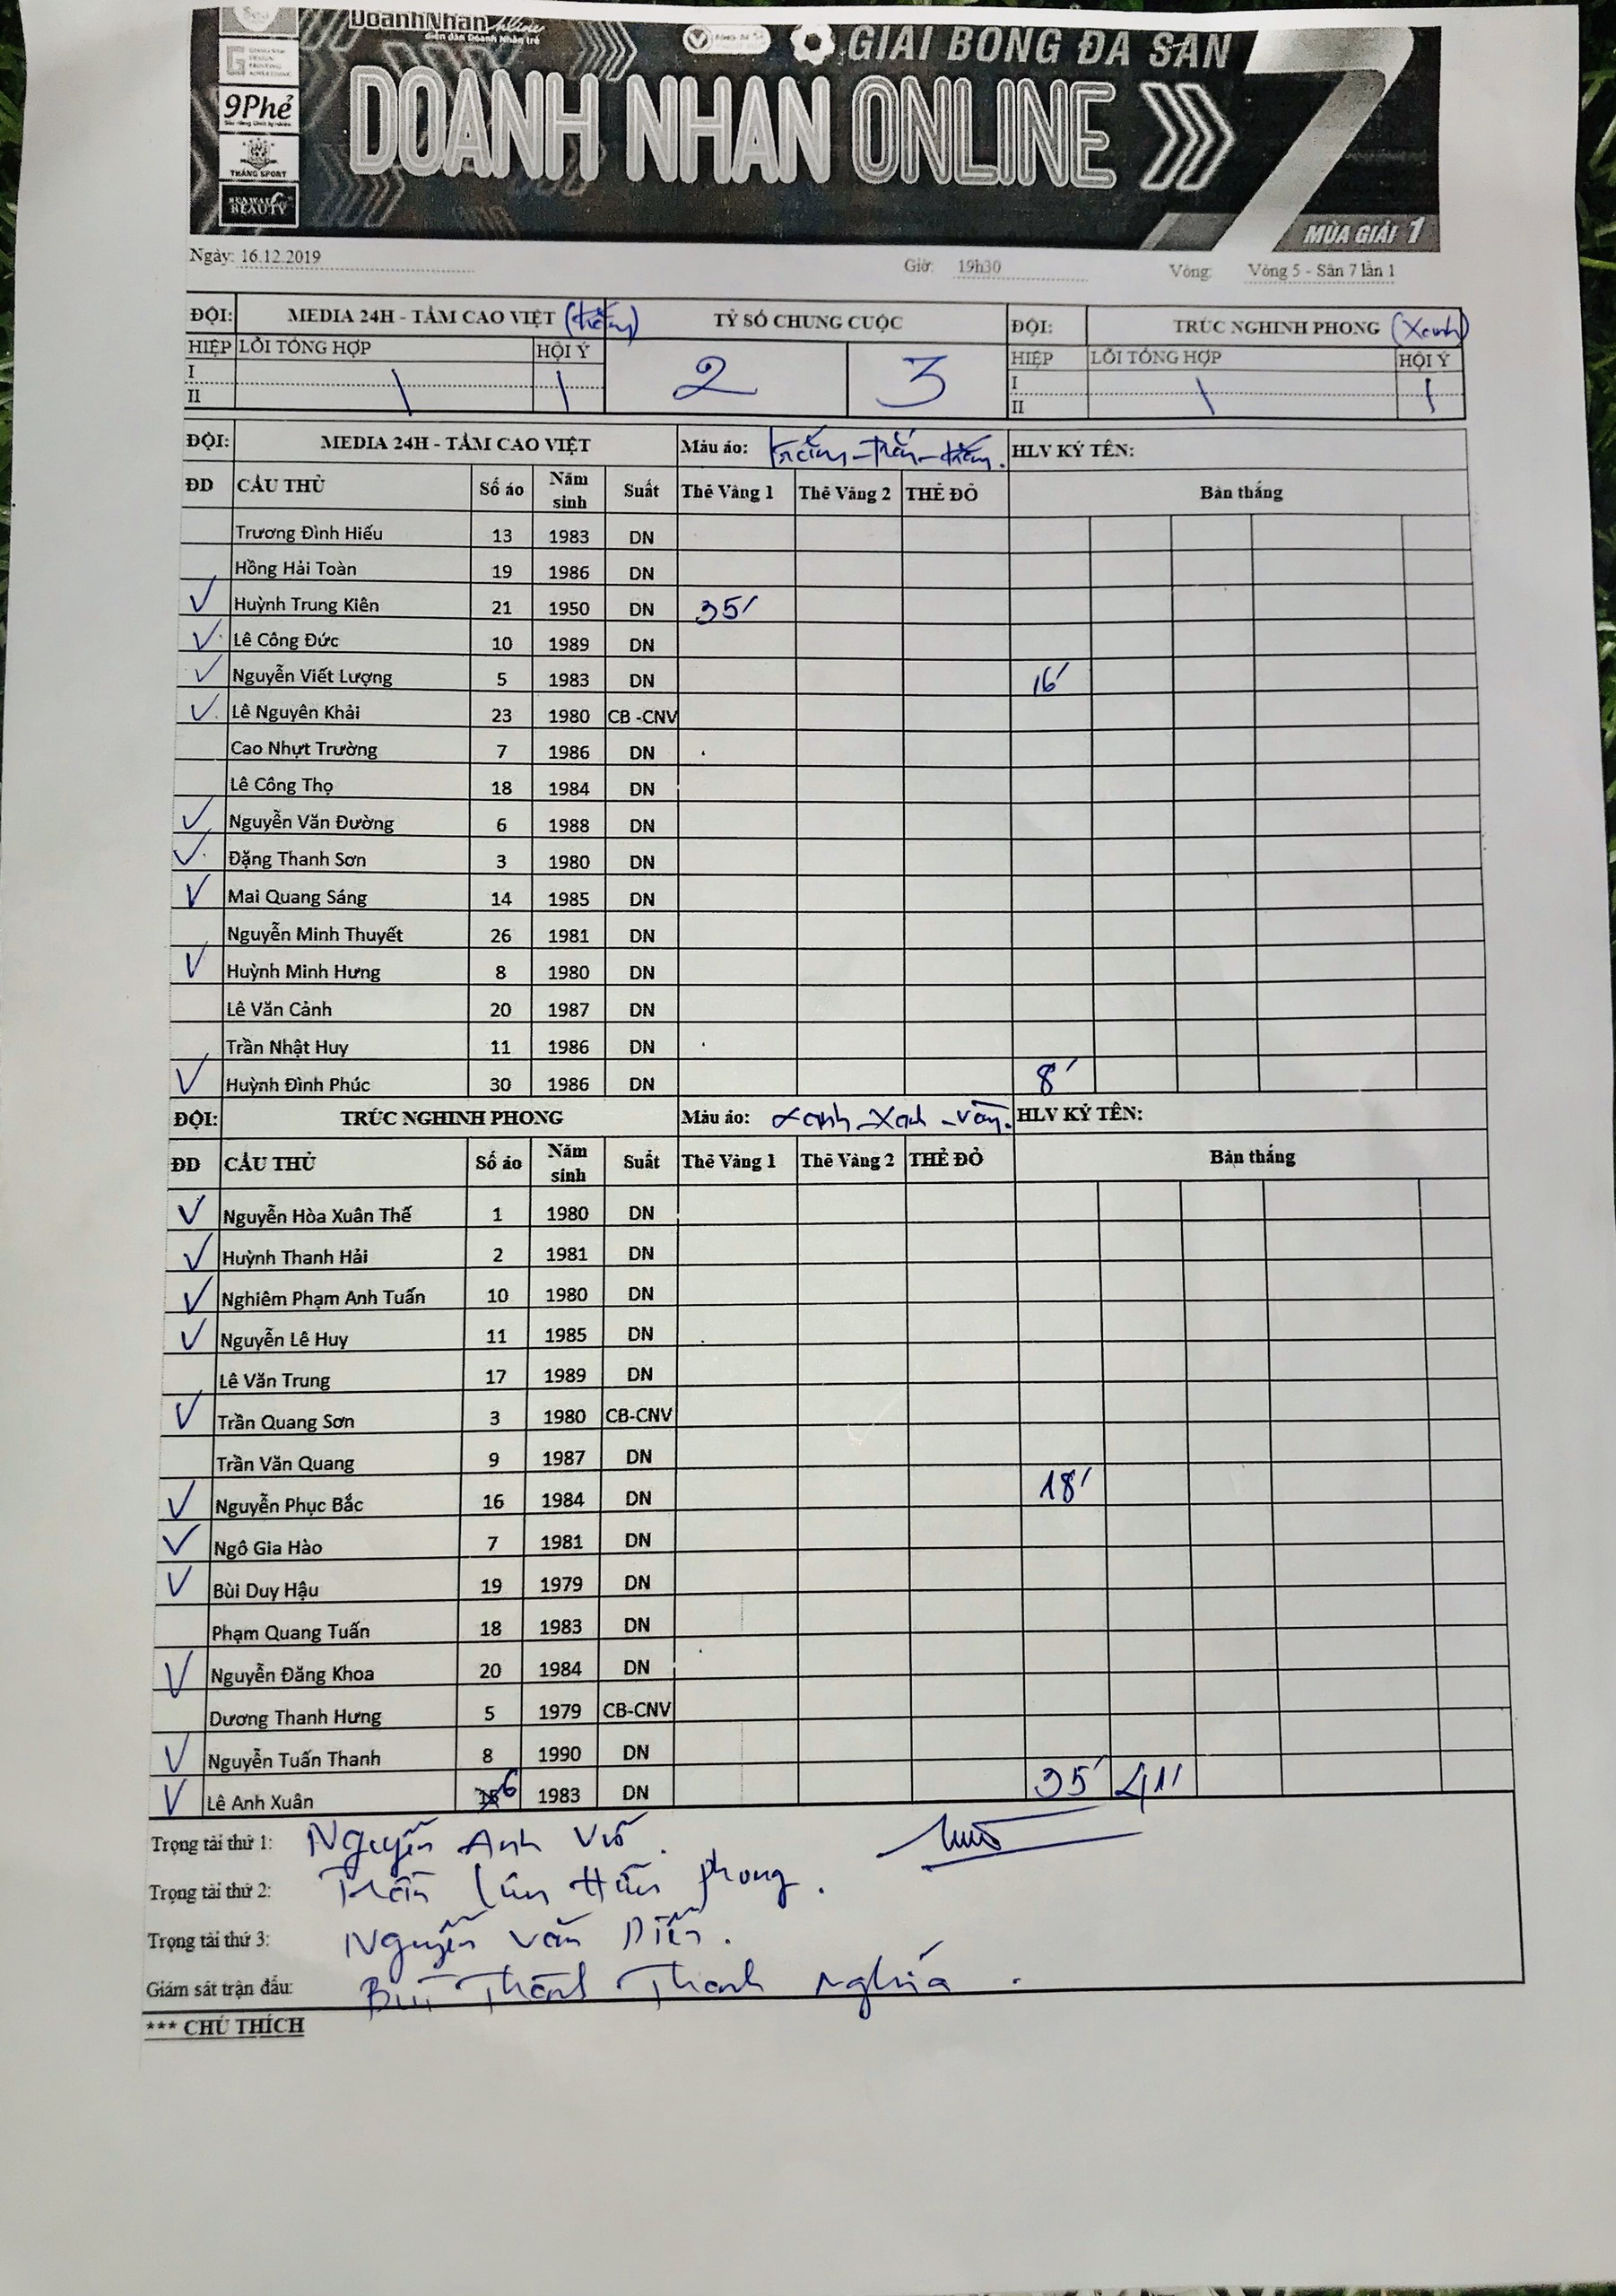 DoanhNhân Online
diễn đàn Doanh Nhân trẻ
GIẢI BÓNG ĐÁ SÂN 7
9Phẻ
DOANH NHÂN ONLINE
THĂNG SPORT
BEAUTY
MÙA GIẢI 1
Ngày: 16.12.2019 Giờ: 19h30 Vòng: Vòng 5 - Sân 7 lần 1
ĐỘI: MEDIA 24H - TẦM CAO VIỆT (trắng) TỶ SỐ CHUNG CUỘC ĐỘI: TRÚC NGHINH PHONG (Xanh)
HIỆP LỖI TỔNG HỢP HỘI Ý 2 3 HIỆP LỖI TỔNG HỢP HỘI Ý
I I
II II
ĐỘI: MEDIA 24H - TẦM CAO VIỆT Màu áo: trắng - trắng - trắng. HLV KÝ TÊN:
ĐD CẦU THỦ Số áo Năm sinh Suất Thẻ Vàng 1 Thẻ Vàng 2 THẺ ĐỎ Bàn thắng
Trương Đình Hiếu 13 1983 DN
Hồng Hải Toàn 19 1986 DN
✓ Huỳnh Trung Kiên 21 1950 DN 35'
✓ Lê Công Đức 10 1989 DN
✓ Nguyễn Viết Lượng 5 1983 DN 16'
✓ Lê Nguyên Khải 23 1980 CB -CNV
Cao Nhựt Trường 7 1986 DN
Lê Công Thọ 18 1984 DN
✓ Nguyễn Văn Đường 6 1988 DN
✓ Đặng Thanh Sơn 3 1980 DN
✓ Mai Quang Sáng 14 1985 DN
Nguyễn Minh Thuyết 26 1981 DN
✓ Huỳnh Minh Hưng 8 1980 DN
Lê Văn Cảnh 20 1987 DN
Trần Nhật Huy 11 1986 DN
✓ Huỳnh Đình Phúc 30 1986 DN 8'
ĐỘI: TRÚC NGHINH PHONG Màu áo: Xanh - Xanh - vàng. HLV KÝ TÊN:
ĐD CẦU THỦ Số áo Năm sinh Suất Thẻ Vàng 1 Thẻ Vàng 2 THẺ ĐỎ Bàn thắng
✓ Nguyễn Hòa Xuân Thế 1 1980 DN
✓ Huỳnh Thanh Hải 2 1981 DN
✓ Nghiêm Phạm Anh Tuấn 10 1980 DN
✓ Nguyễn Lê Huy 11 1985 DN
Lê Văn Trung 17 1989 DN
✓ Trần Quang Sơn 3 1980 CB-CNV
Trần Văn Quang 9 1987 DN
✓ Nguyễn Phục Bắc 16 1984 DN 18'
✓ Ngô Gia Hào 7 1981 DN
✓ Bùi Duy Hậu 19 1979 DN
Phạm Quang Tuấn 18 1983 DN
✓ Nguyễn Đăng Khoa 20 1984 DN
Dương Thanh Hưng 5 1979 CB-CNV
✓ Nguyễn Tuấn Thanh 8 1990 DN
✓ Lê Anh Xuân 6 1983 DN 35' 41'
Trọng tài thứ 1: Nguyễn Anh Vũ.
Trọng tài thứ 2: Trần Phong.
Trọng tài thứ 3: Nguyễn Văn
Giám sát trận đấu: Bùi Thanh Nghĩa.
*** CHÚ THÍCH